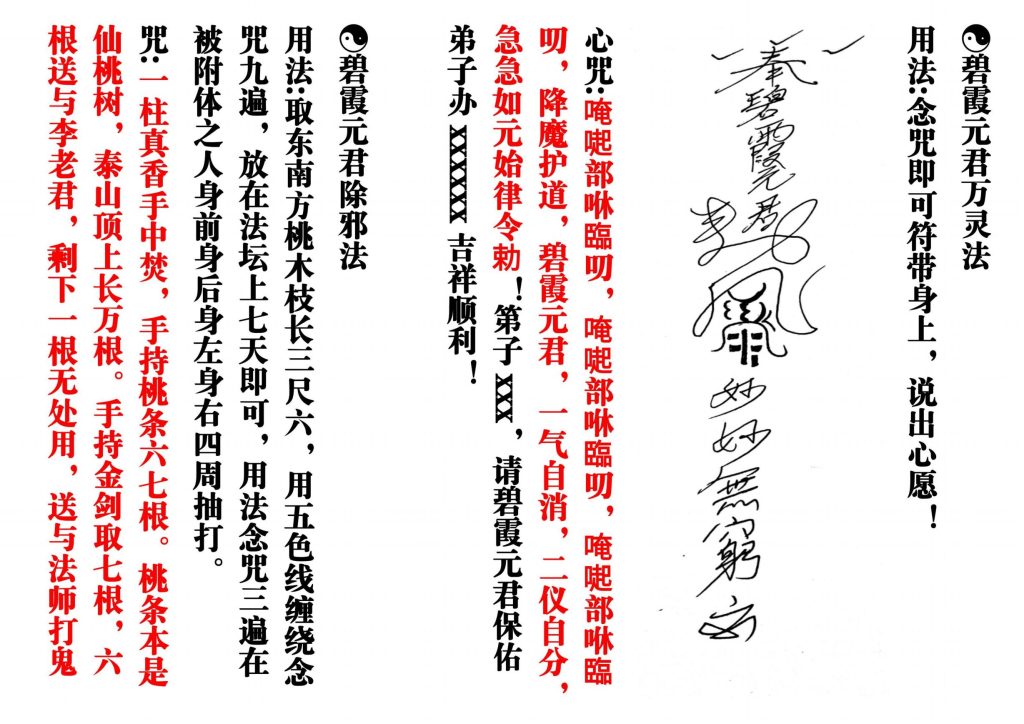 ☯碧霞元君万灵法
用法:念咒即可符带身上，说出心愿！
奉碧霞元君
妙妙無窮
心咒:唵喣部咻臨叨，唵喣部咻臨叨，唵喣部咻臨
叨，降魔护道，碧霞元君，一气自消，二仪自分，
急急如元始律令勅！第子 XXX ，请碧霞元君保佑
弟子办 XXXXXX 吉祥顺利！
☯碧霞元君除邪法
用法:取东南方桃木枝长三尺六，用五色线缠绕念
咒九遍，放在法坛上七天即可，用法念咒三遍在
被附体之人身前身后身左身右四周抽打。
咒:一柱真香手中焚，手持桃条六七根。桃条本是
仙桃树，泰山顶上长万根。手持金剑取七根，六
根送与李老君，剩下一根无处用，送与法师打鬼